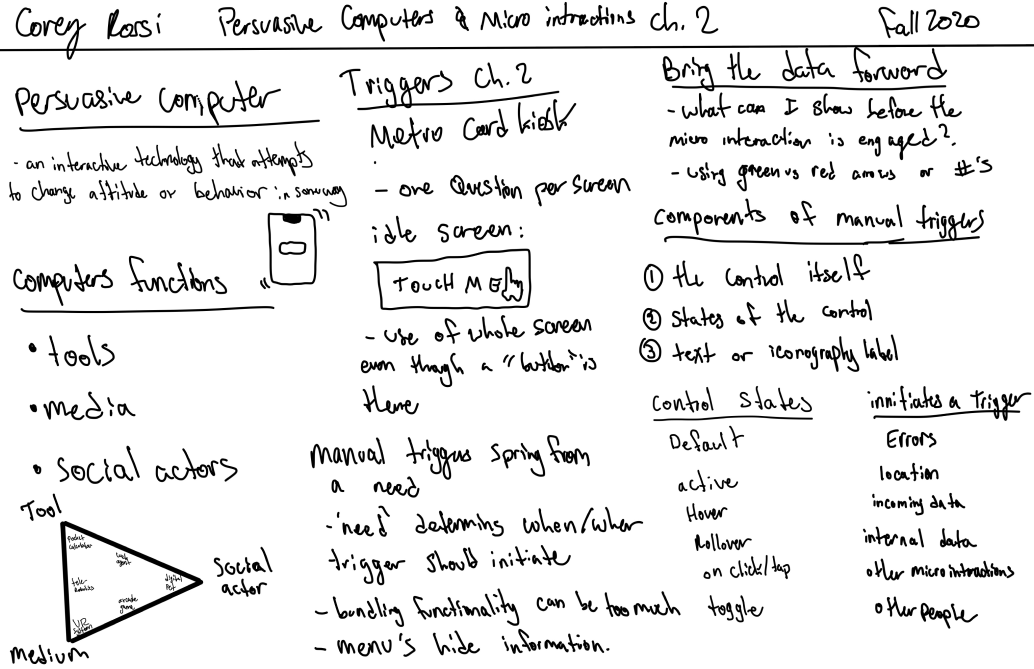 Corey Rossi Persuasive Computers & Micro intractions ch. 2 Fall 2020
Persuasive Computer
- an interactive technology that attempts
to change attitude or behavior in someway
Computers functions
• tools
• media
• Social actors
Tool
Pocket
calculator
agent
digital
Pet
arcade
game
VR
System
Social
actor
Medium
Triggers Ch. 2
Metro Card kiosk
- one Question per screen
idle screen:
TOUCH ME
- use of whole screen
even though a "button" is
there
Manual triggers spring from
a need
- "need" determins when/wher
trigger should initiate
- bundling functionality can be too much
- menu's hide information.
Bring the data forward
- what can I show before the
micro interaction is engaged?
- using green vs red arrows or #'s
Components of manual triggers
① the control itself
② states of the control
③ text or iconography label
Control States
Default
active
Hover
Rollover
on click/tap
toggle
innitiates a Trigger
Errors
location
incoming data
internal data
other micro intractions
other people